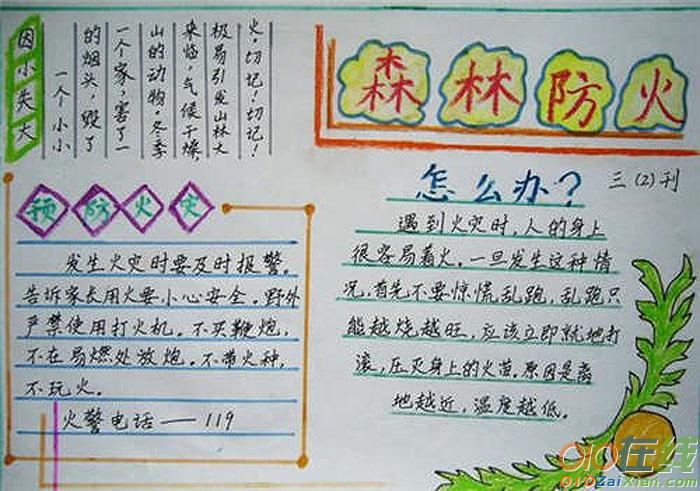 森林防火
三(2)刊
因小失大
一个小小
的烟头,毁了
一个家,害了一
山的动物.冬季
来临,气候干燥,
极易引发山林大
火.切记!切记!
预防火灾
发生火灾时要及时报警。
告诉家长用火要小心安全。野外
严禁使用打火机。不买鞭炮,
不在易燃处放炮。不带火种,
不玩火。
火警电话——119
怎么办?
遇到火灾时,人的身上
很容易着火。一旦发生这种情
况,首先不要惊慌乱跑,乱跑只
能越烧越旺,应该立即就地打
滚,压灭身上的火苗.原因是离
地越近,温度越低。
010在线
010zaixian.com